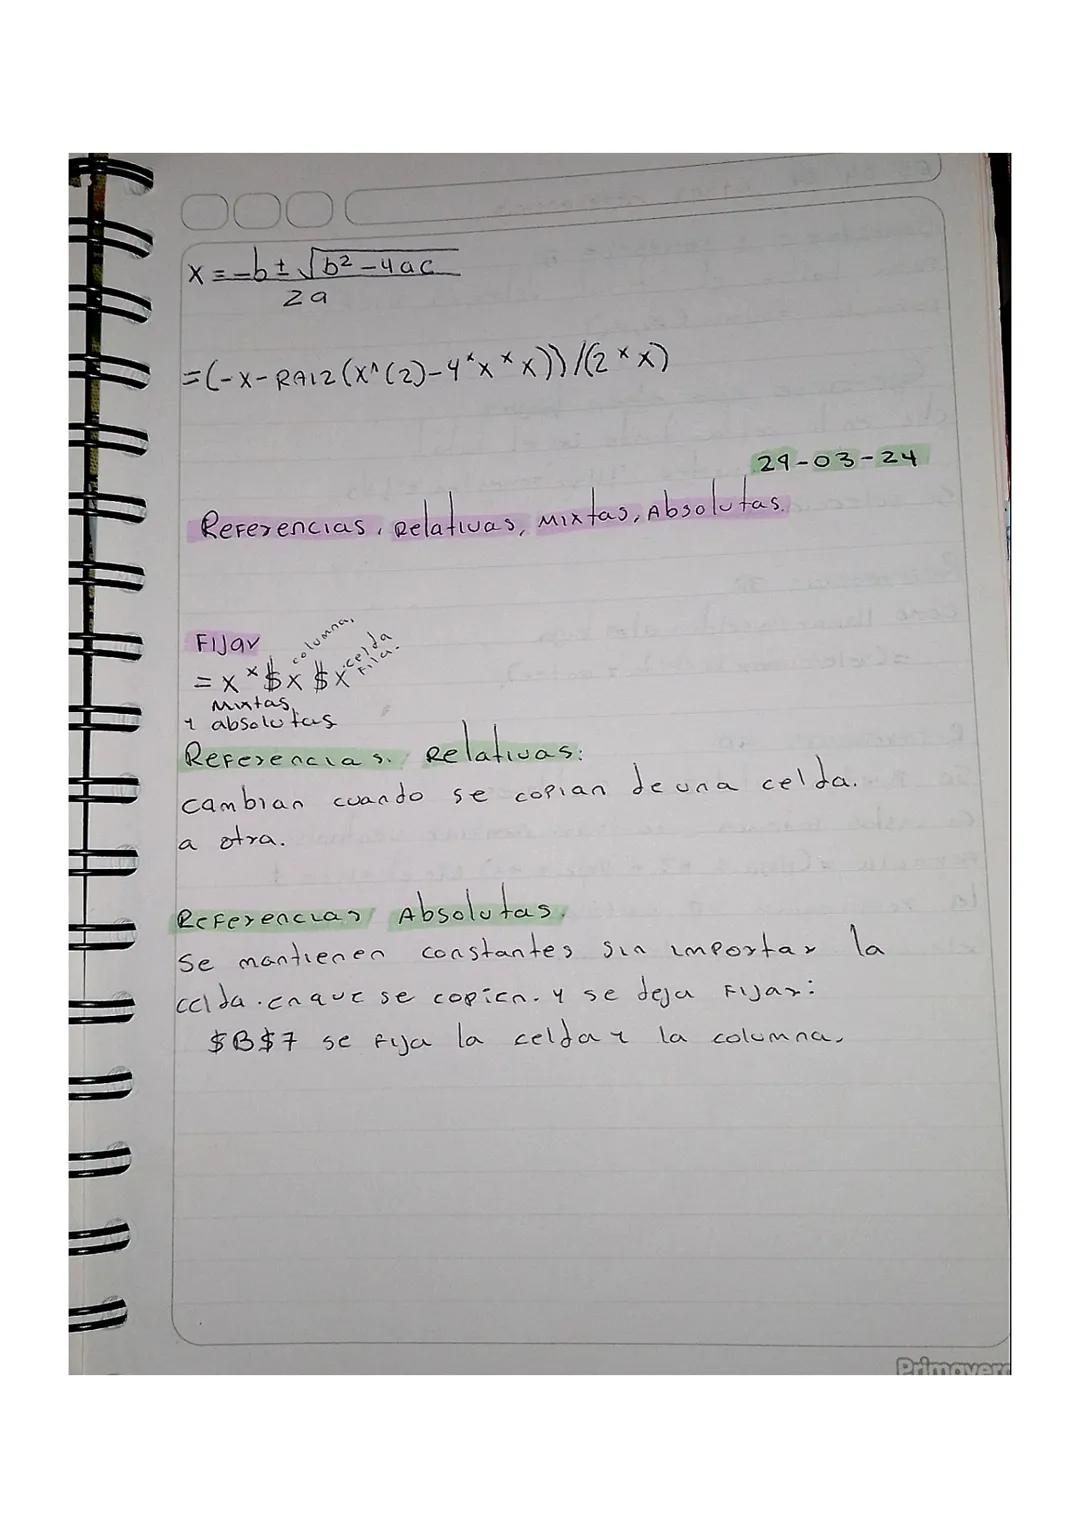 x = -b ± √b² - 4ac
2a
=(-x-RAIZ(x^(2)-4*x*x))/(2*x)
29-03-24
Referencias, Relativas, Mixtas, Absolutas.
Fijar
columna,
celda
Fila.
= x*$x$x
Mixtas,
y absolutas
Referencias. Relativas:
cambian cuando se copian de una celda.
a otra.
Referencias Absolutas.
Se mantienen constantes sin importar la
celda. en que se copien. y se deja Fijar:
$B$7 se fija la celda y la columna,
Primavera